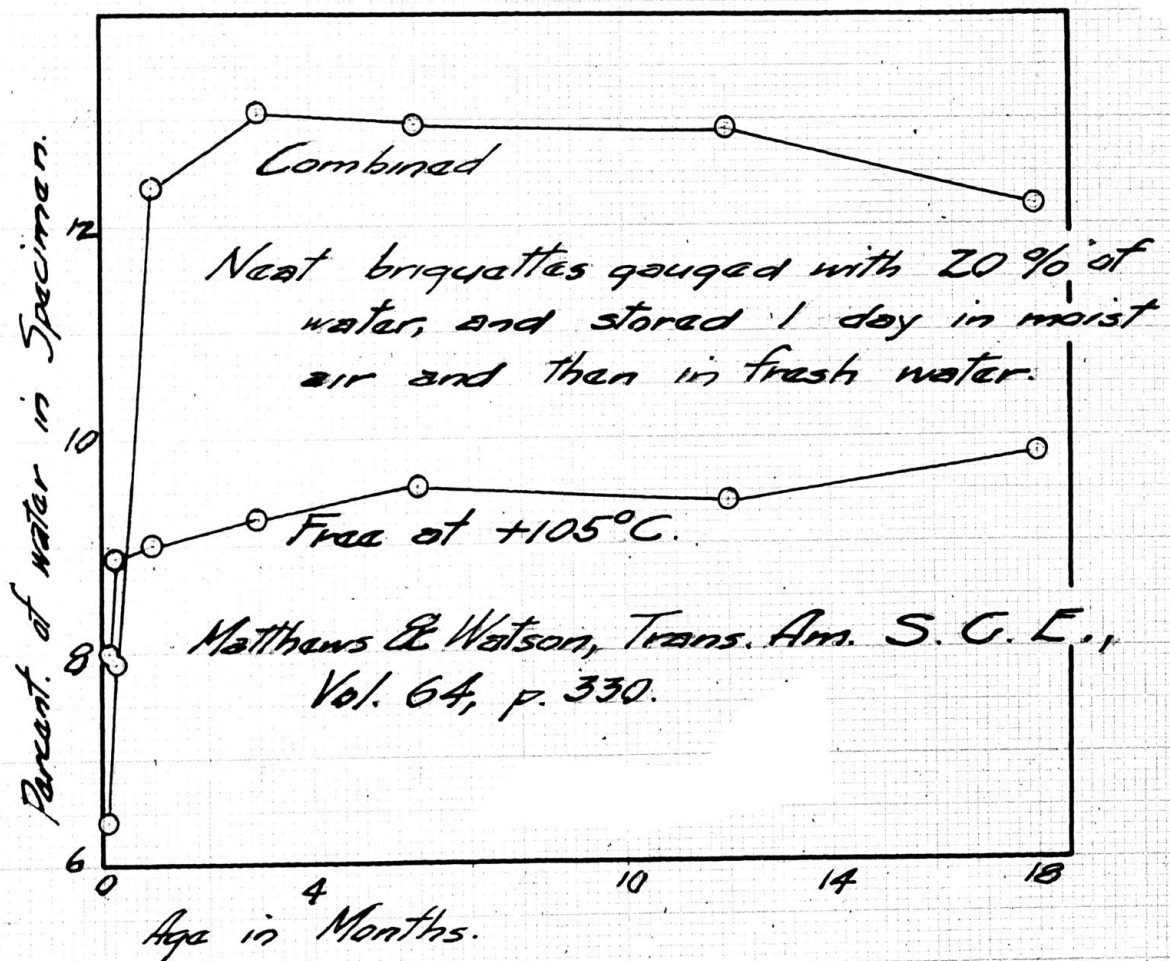 Percent. of water in Specimen.
12
10
8
6
Combined
Neat briquettes gauged with 20% of
water, and stored 1 day in moist
air and then in fresh water.
Free at +105°C.
Matthews & Watson, Trans. Am. S. C. E.,
Vol. 64, p. 330.
0 4 10 14 18
Age in Months.